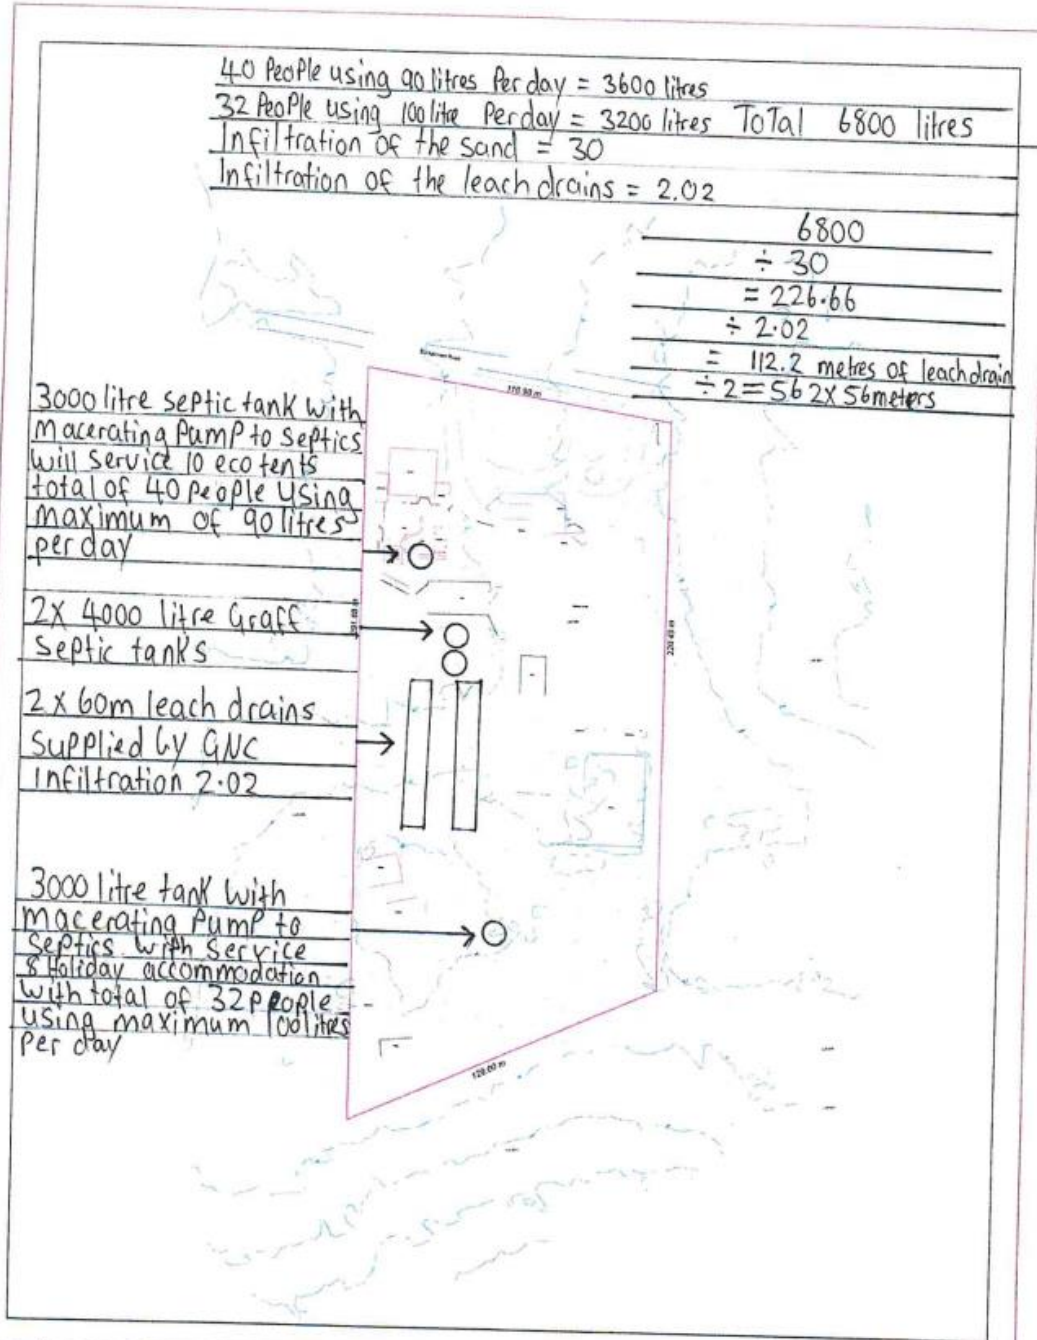 40 People using 90 litres Per day = 3600 litres
32 People using 100 litre Per day = 3200 litres ToTal 6800 litres
Infiltration of the sand = 30
Infiltration of the leach drains = 2.02
6800
÷ 30
= 226.66
÷ 2.02
= 112.2 metres of leachdrain
÷ 2 = 56 2x 56 meters
110.90 m
3000 litre septic tank with
macerating Pump to septics
will service 10 eco tents
total of 40 people using
maximum of 90 litres
per day
2x 4000 litre Graff
septic tanks
220.49 m
2 x 60m leach drains
supplied by GNC
infiltration 2.02
3000 litre tank with
macerating Pump to
septics with service
8 Holiday accommodation
with total of 32 people
using maximum 100 litres
per day
120.00 m